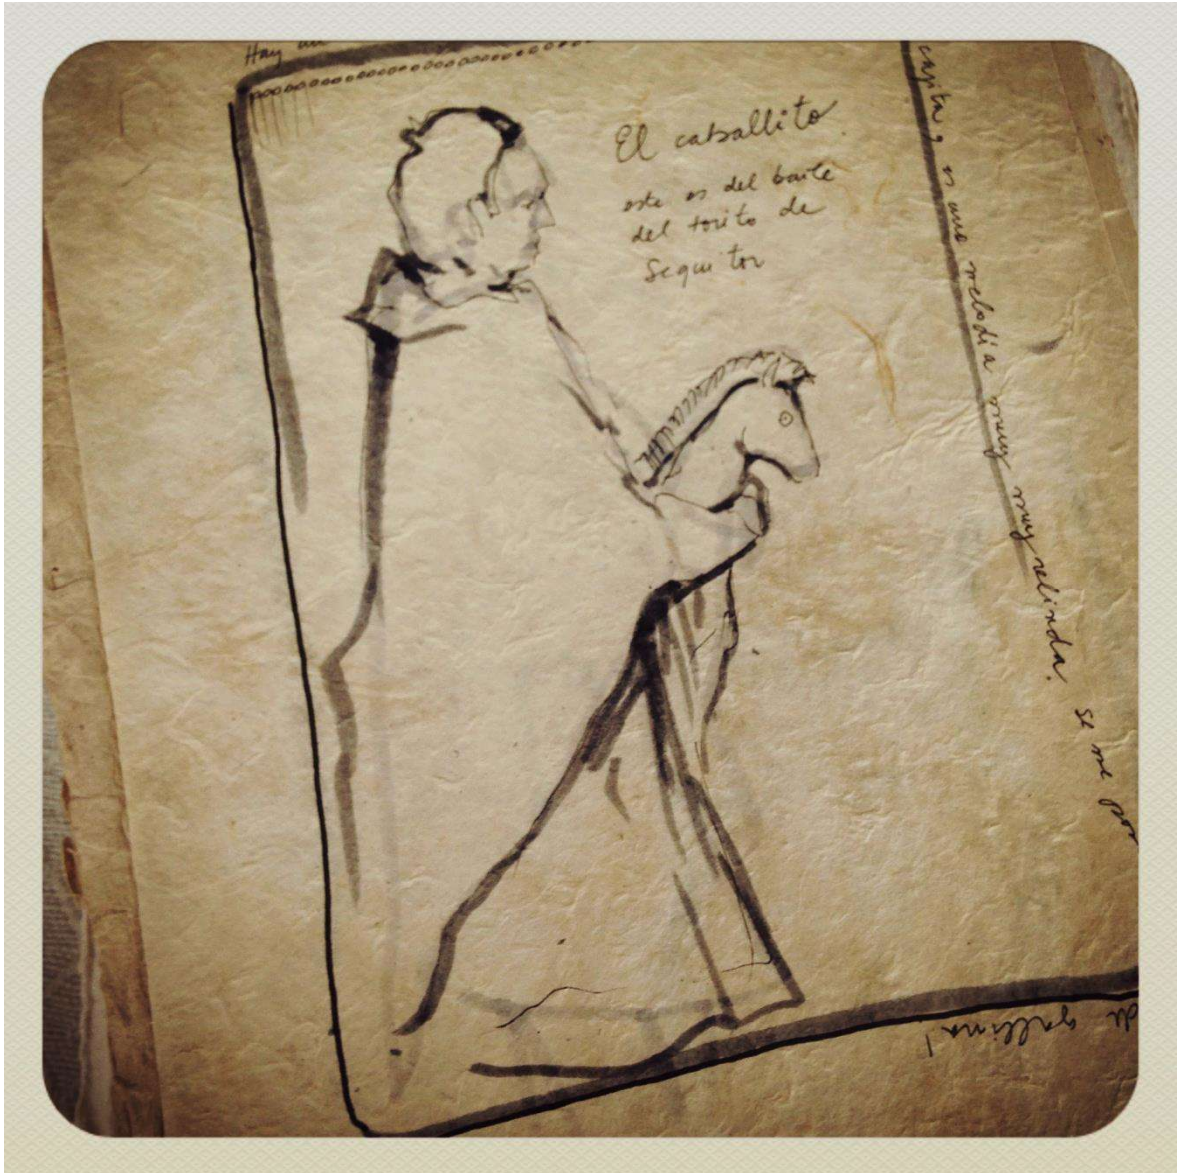 Hay un
El caballito.
este es del baile
del torito de
Sequitor
capita, es una melodía muy muy relinda.
se me por
de gallina!